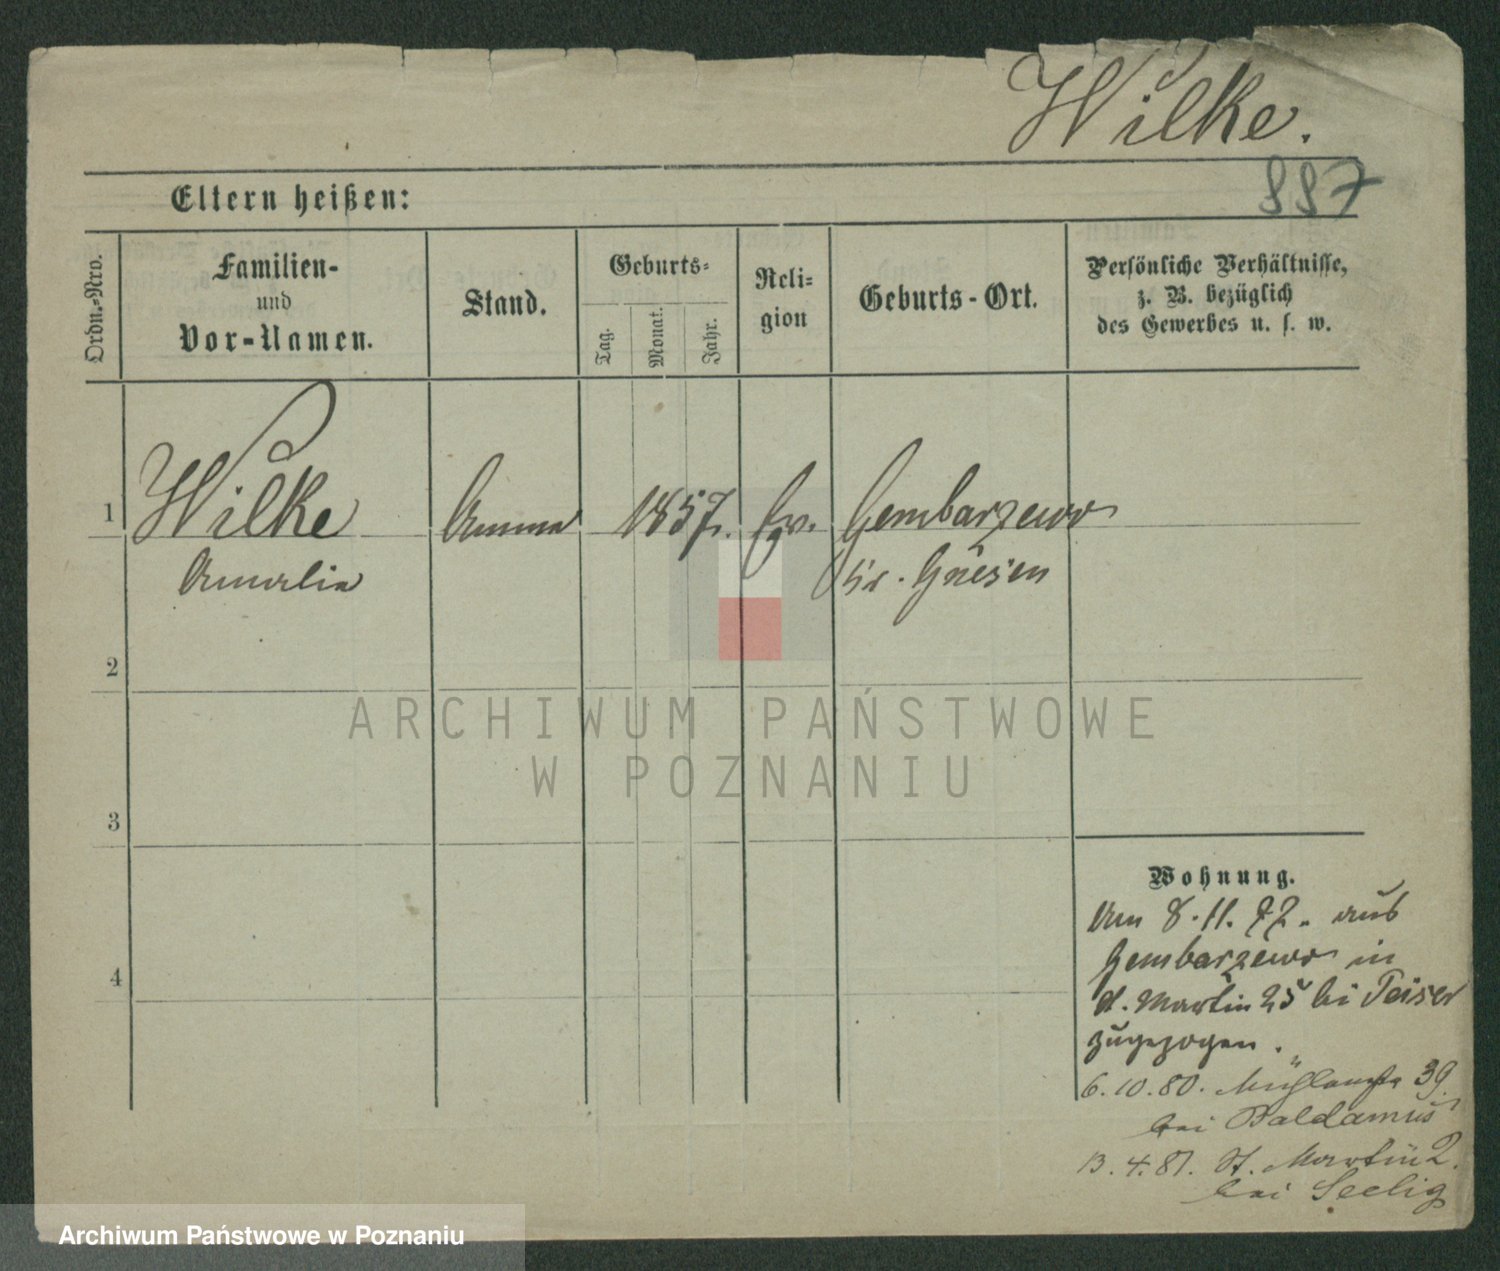 Wilke.
887
Eltern heißen:
Ordn.-Nro.
Familien-
und
Vor-Namen.
Stand.
Geburts-
Tag.
Monat.
Jahr.
Reli-
gion
Geburts-Ort.
Persönliche Verhältnisse,
z. B. bezüglich
des Gewerbes u. s. w.
1
Wilke
Amme
1857.
Ev.
Gembarzewo
Amalie
Kr. Gnesen
2
ARCHIWUM PAŃSTWOWE
W POZNANIU
3
Wohnung.
Am 8.11.77. aus
Gembarzewo in
St. Martin 25 bei Peiser
4
zugezogen.
6.10.80. Mühlenstr 39.
bei Baldamus
13.4.81. St. Martin 2.
bei Seelig
Archiwum Państwowe w Poznaniu